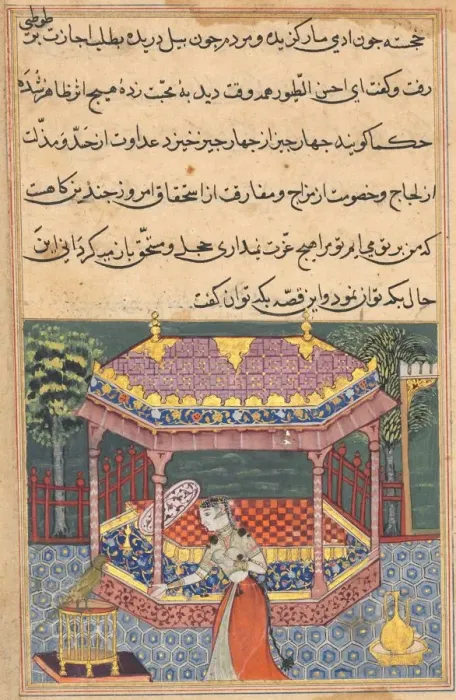 خجسته چون آدمی مار گزیده و مردم چون سل دریده بطلب اجازت بر طوطی
رفت و گفت ای احسن الطیور همه وقت دید به محبت زده هیچ اثر ظاهر نشده
حکما گویند چهار چیز از چهار چیز خیزد عداوت از حد و مذلت
از لجاج و خصومت از مزاح و مفارقت از استحقاق امروز چندین گاهست
که من بر تو می ایم تو مرا هیچ عزت نمیداری خجل و باز میگردانی این
حال بکه توان نمود و این قصه بکه توان گفت